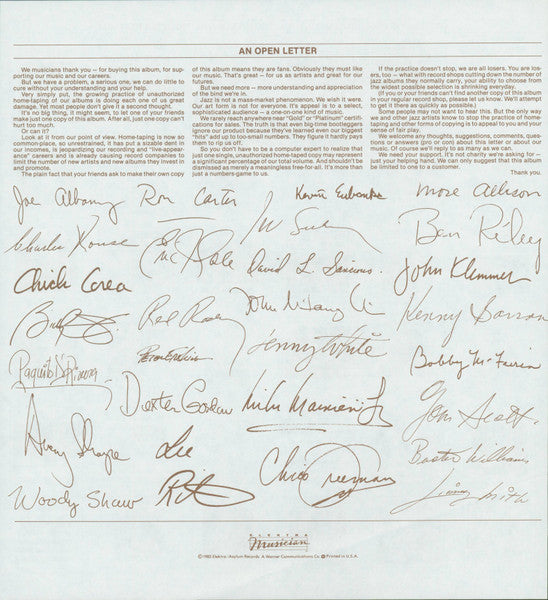 AN OPEN LETTER
We musicians thank you — for buying this album, for supporting our music and our careers.
But we have a problem, a serious one, we can do little to
cure without your understanding and your help.
Very simply put, the growing practice of unauthorized
home-taping of our albums is doing each one of us great
damage. Yet most people don't give it a second thought.
It's no big thing, it might seem, to let one of your friends
make just one copy of this album. After all, just one copy can't
hurt too much.
Or can it?
Look at it from our point of view. Home-taping is now so
common-place, so unrestrained, it has put a sizable dent in
our incomes, is jeopardizing our recording and "live-appearance" careers and is already causing record companies to
limit the number of new artists and new albums they invest in
and promote.
The plain fact that your friends ask to make their own copy
of this album means they are fans. Obviously they must like
our music. That's great — for us as artists and great for our
futures.
But we need more — more understanding and appreciation
of the bind we're in.
Jazz is not a mass-market phenomenon. We wish it were.
Our art form is not for everyone. It's appeal is to a select,
sophisticated audience — a one-on-one kind of music.
We rarely reach anywhere near "Gold" or "Platinum" certifications for sales. The truth is that even big-time bootleggers
ignore our product because they've learned even our biggest
"hits" add up to too-small numbers. They figure it hardly pays
them to rip us off.
So you don't have to be a computer expert to realize that
just one single, unauthorized home-taped copy may represent
a significant percentage of our total volume. And shouldn't be
dismissed as merely a meaningless free-for-all. It's more than
just a numbers-game to us.
If the practice doesn't stop, we are all losers. You are losers, too — what with record shops cutting down the number of
jazz albums they normally carry, your ability to choose from
the widest possible selection is shrinking everyday.
(If you or your friends can't find another copy of this album
in your regular record shop, please let us know. We'll attempt
to get it there as quickly as possible.)
Some people may not want to hear this. But the only way
we and other jazz artists know to stop the practice of home-taping and other forms of copying is to appeal to you and your
sense of fair play.
We welcome any thoughts, suggestions, comments, questions or answers (pro or con) about this letter or about our
music. Of course we'll reply to as many as we can.
We need your support. It's not charity we're asking for —
just your helping hand. We can only suggest that this album
be limited to one to a customer.
Thank you.
Joe Albany Ron Carter Kevin Eubanks Mose Allison
Charlie Rouse David L. Sancious Ben Riley
Chick Corea John Klemmer
Bill Red Rodney Kenny Barron
Lenny White
Paquito D'Rivera Bobby McFerrin
Dexter Gordon Mike Mainieri Jr
Avery Sharpe Lee Tom Scott
Buster Williams
Woody Shaw Chico Freeman Jimmy Smith
ELEKTRA
Musician
©1982 Elektra/Asylum Records A Warner Communications Co. Printed in U.S.A.